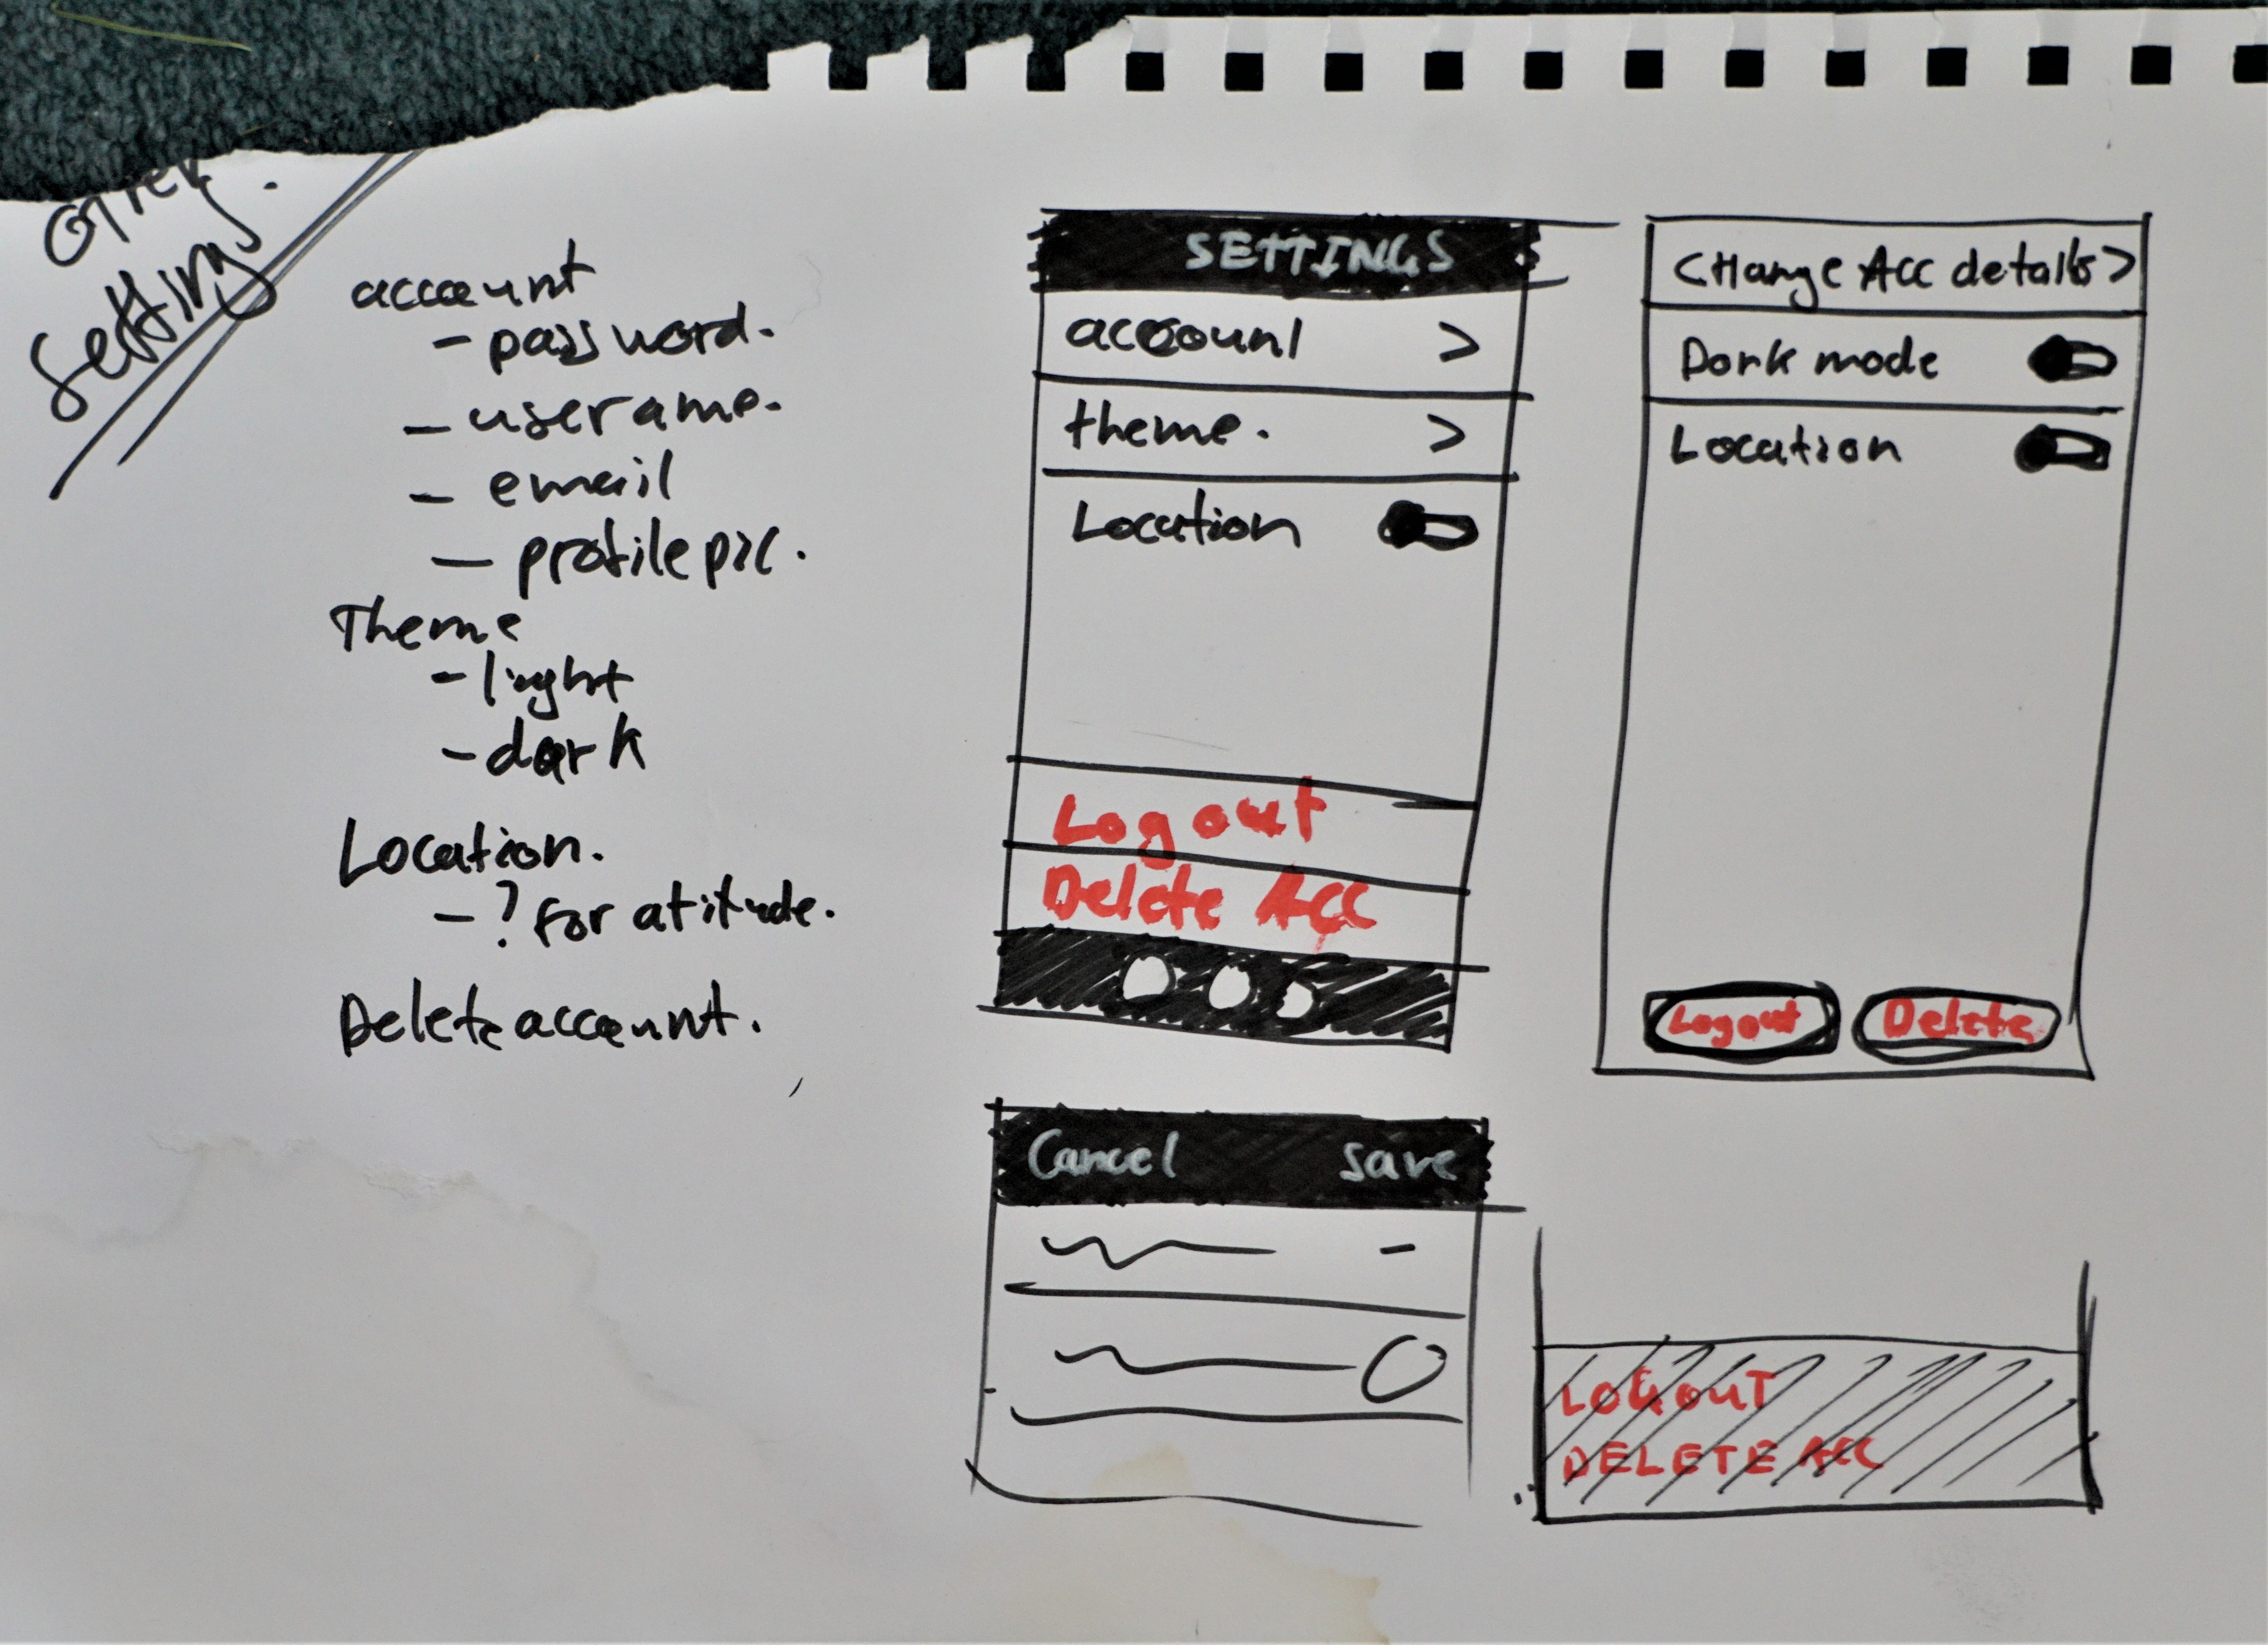 Setting
account
- password.
- userame.
- email
- profile pic.
Theme
- light
- dark
Location.
- ? for atitude.
Delete account.
SETTINGS
account >
theme. >
Location
Logout
Delete Acc
CHange Acc details >
Dark mode
Location
Logout Delete
Cancel Save
LOGOUT
DELETE ACC